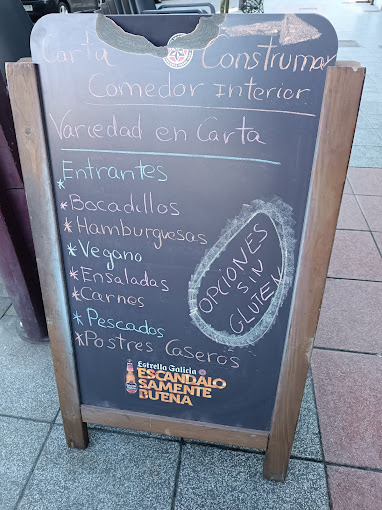 Carta Construmar
Comedor Interior
Variedad en Carta
*Entrantes
*Bocadillos
*Hamburguesas
*Vegano
*Ensaladas
*Carnes
*Pescados
*Postres Caseros
OPCIONES
SIN
GLUTEN
Estrella Galicia
ESCANDALO
SAMENTE
BUENA